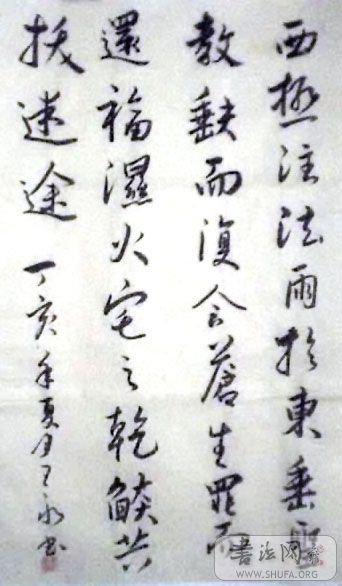 西極注法雨於東垂聖
教缺而復全蒼生罪而
還福濕火宅之乾燄共
拔迷途 丁亥年夏月永書
書法网
WWW.SHUFA.ORG